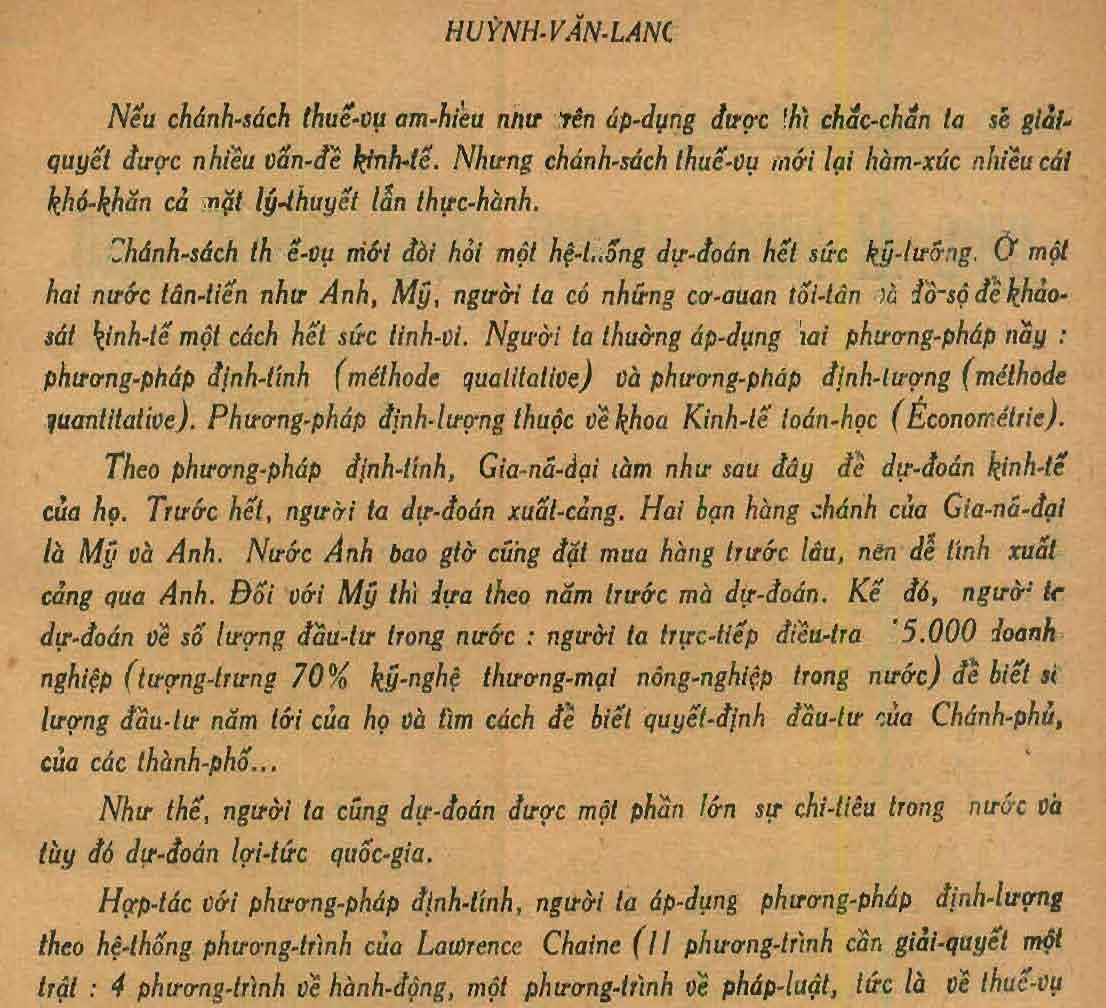 HUỲNH-VĂN-LANG
Nếu chánh-sách thuế-vụ am-hiểu như trên áp-dụng được thì chắc-chắn ta sẽ giải-
quyết được nhiều vấn-đề kinh-tế. Nhưng chánh-sách thuế-vụ mới lại hàm-xúc nhiều cái
khó-khăn cả mặt lý-thuyết lẫn thực-hành.
Chánh-sách thuế-vụ mới đòi hỏi một hệ-thống dự-đoán hết sức kỹ-lưỡng. Ở một
hai nước tân-tiến như Anh, Mỹ, người ta có những cơ-quan tối-tân và đồ-sộ để khảo-
sát kinh-tế một cách hết sức tinh-vi. Người ta thường áp-dụng hai phương-pháp nầy :
phương-pháp định-tính (méthode qualitative) và phương-pháp định-lượng (méthode
quantitative). Phương-pháp định-lượng thuộc về khoa Kinh-tế toán-học (Économétrie).
Theo phương-pháp định-tính, Gia-nã-đại làm như sau đây để dự-đoán kinh-tế
của họ. Trước hết, người ta dự-đoán xuất-cảng. Hai bạn hàng chánh của Gia-nã-đại
là Mỹ và Anh. Nước Anh bao giờ cũng đặt mua hàng trước lâu, nên dễ tính xuất
cảng qua Anh. Đối với Mỹ thì dựa theo năm trước mà dự-đoán. Kế đó, người ta
dự-đoán về số lượng đầu-tư trong nước : người ta trực-tiếp điều-tra doanh
nghiệp (tượng-trưng 70% kỹ-nghệ thương-mại nông-nghiệp trong nước) để biết số
lượng đầu-tư năm tới của họ và tìm cách để biết quyết-định đầu-tư của Chánh-phủ,
của các thành-phố...
Như thế, người ta cũng dự-đoán được một phần lớn sự chi-tiêu trong nước và
tùy đó dự-đoán lợi-tức quốc-gia.
Hợp-tác với phương-pháp định-tính, người ta áp-dụng phương-pháp định-lượng
theo hệ-thống phương-trình của Lawrence Chaine (11 phương-trình cần giải-quyết một
trật : 4 phương-trình về hành-động, một phương-trình về pháp-luật, tức là về thuế-vụ